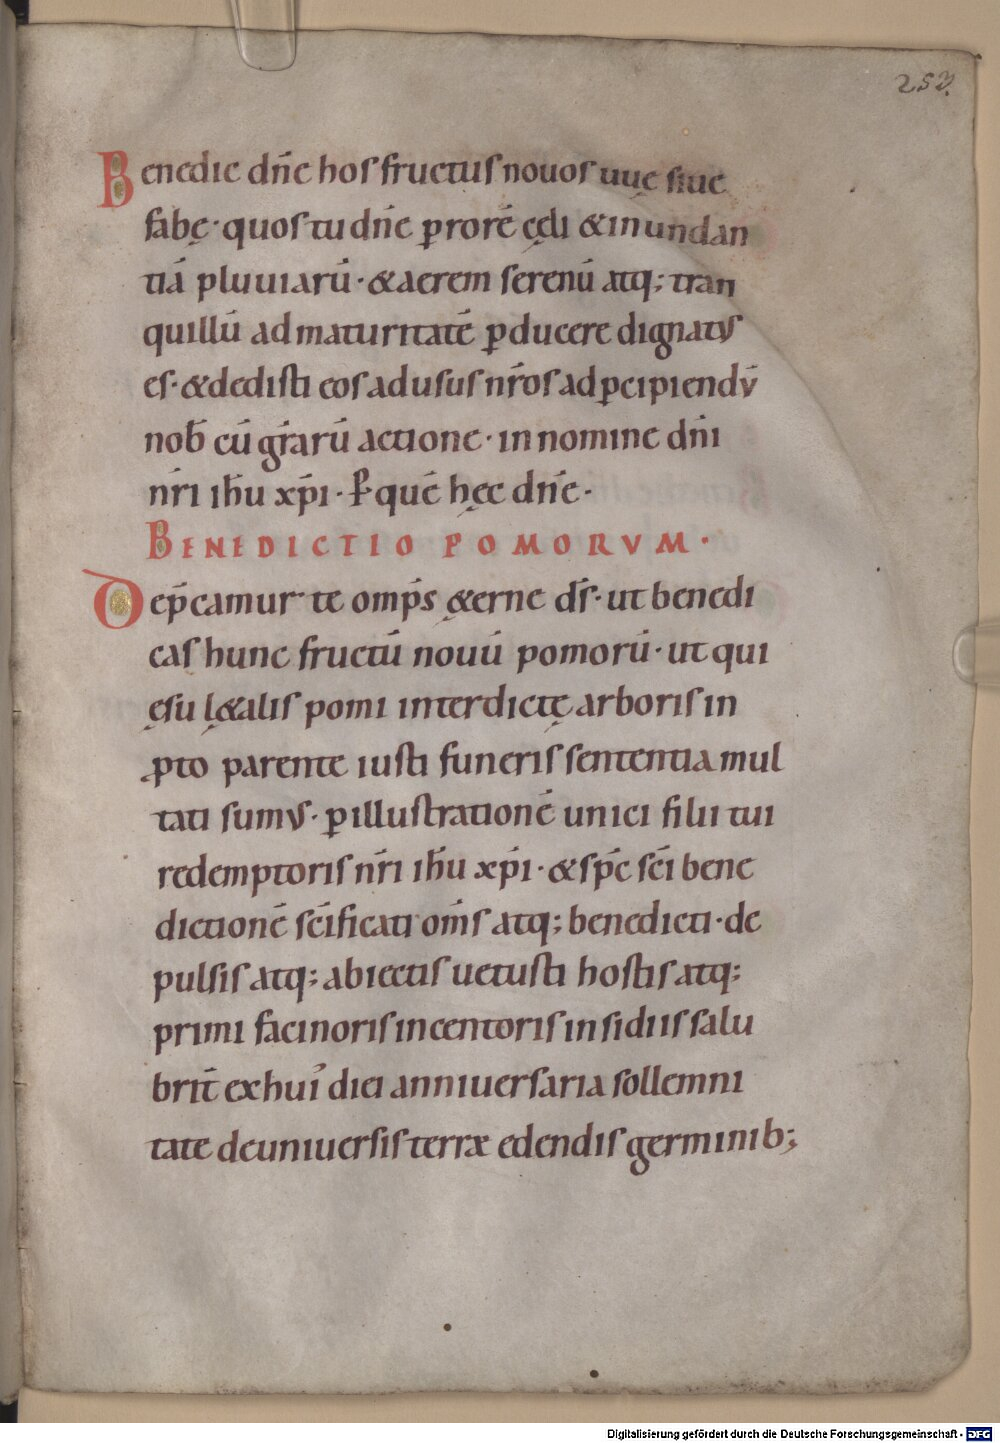 253.
Benedic dn̄e hos fructus nouos uuę siue
fabę· quos tu dn̄e ꝓ rorē cęli & inundan
tiā pluuiarū· & aerem serenū atq; tran
quillū ad maturitatē ꝑducere dignatus
es· & dedisti eos ad usus nr̄os ad ꝑcipiendū
nob̄ cū gr̄arū actione· in nomine dn̄i
nr̄i ih̄u xp̄i· P̱ quē hęc dn̄e·
BENEDICTIO POMORVM·
Dep̄camur te omp̄s ę&erne ds̄· ut benedi
cas hunc fructū nouū pomorū· ut qui
ęsu l&alis pomi interdictę arboris in
ꝓto parente iusti funeris sententia mul
tati sumus· ꝑ illustrationē unici filii tui
redemptoris nr̄i ih̄u xp̄i· & sp̄c sc̄i bene
dictionē sc̄ificati om̄s atq; benedicti· de
pulsis atq; abiectis uetusti hostis atq;
primi facinoris incentoris insidiis salu
brit̄ ex hui᾽ diei anniuersaria sollemni
tate de uniuersis terræ edendis germinib;
Digitalisierung gefördert durch die Deutsche Forschungsgemeinschaft - DFG